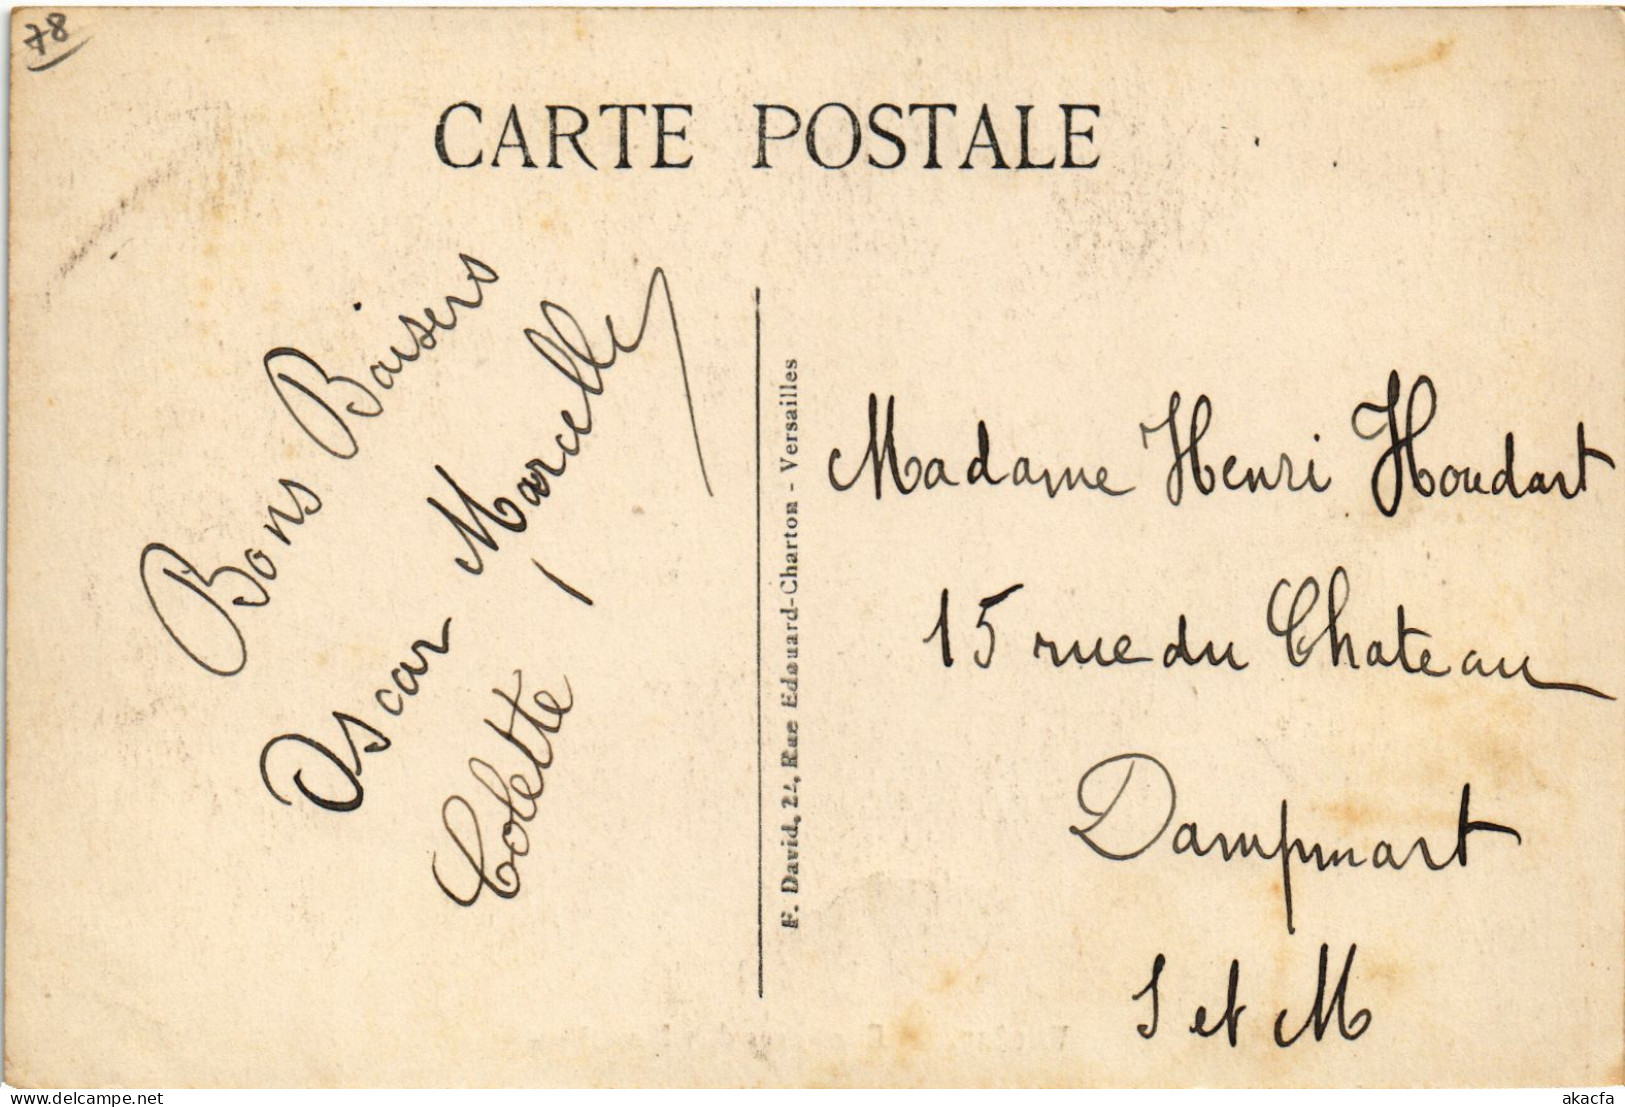 78
CARTE POSTALE
Bons Baisers
Oscar Marcelle
Colette
F. David, 22, Rue Edouard-Charton - Versailles
Madame Henri Houdart
15 rue du Chateau
Dampmart
S et M
delcampe.net
akacfa